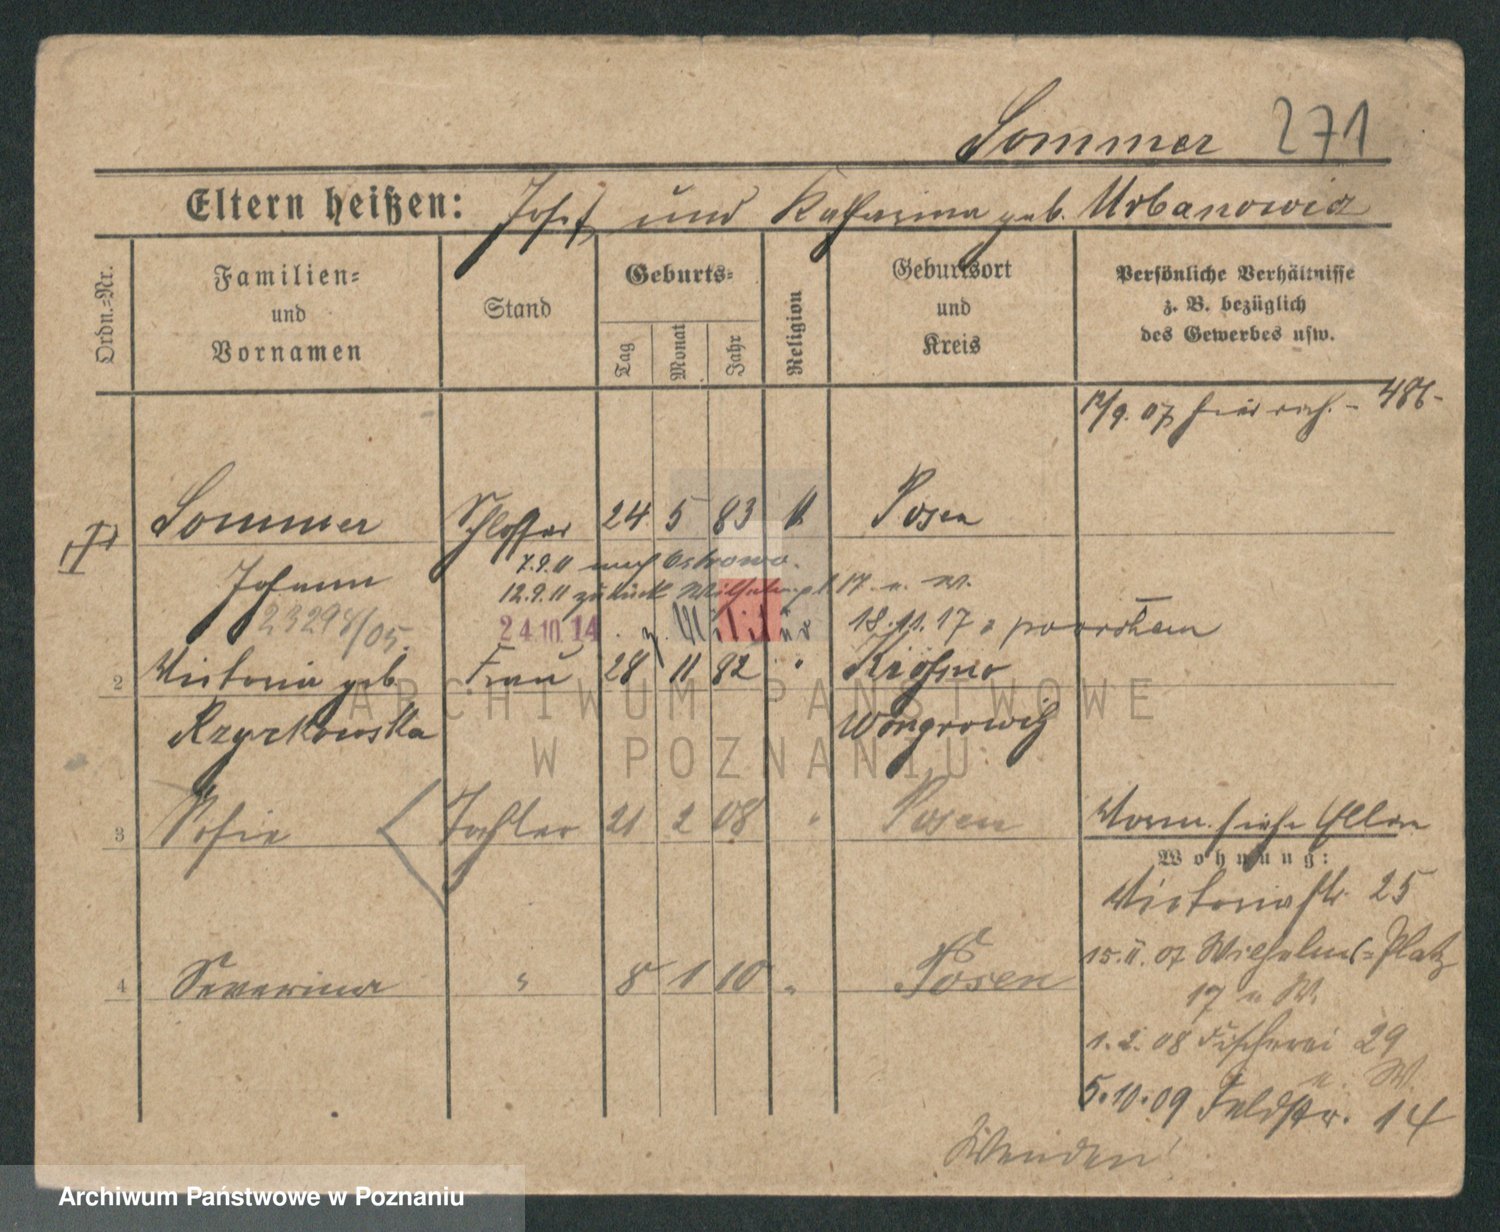 Sommer 271
Eltern heißen: Josef und Katharina geb. Urbanowicz
Ordn.=Nr.
Familien=
und
Vornamen
Stand
Geburts=
Tag
Monat
Jahr
Religion
Geburtsort
und
Kreis
Persönliche Verhältnisse
z. B. bezüglich
des Gewerbes usw.
12/9. 07 486
Sommer Schlosser 24 5 83 Posen
7.9.11 nach Ostrowo.
Johann
12.9.11 zurück Wilhelmspl 17. u. W.
23298/05.
24.10.14 z. Militär 18.11.17
2 Victoria geb. Frau 28 11 82 "
Rzyczkowska Wongrowitz
ARCHIWUM PAŃSTWOWE
W POZNANIU
3 Sofie Tochter 21 2 08 " Posen
Vorm. siehe Eltern
Wohnung:
Victoriastr. 25
4 Severina " 8 1 10 " Posen
15.II.07 Wilhelms=Platz
17 u W.
1.2.08 Fischerei 29
u. W.
5.10.09 Feldstr. 14
Wenden!
Archiwum Państwowe w Poznaniu